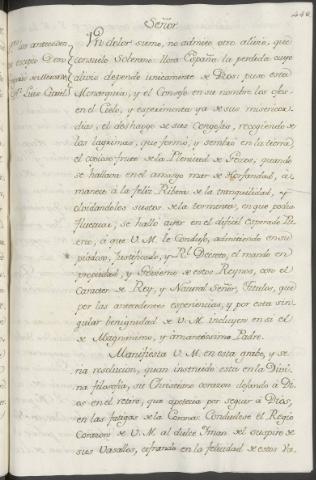 446
Señor
Los anteceden
excepto Don
Luis Curiel
Un dolor sumo, no admite otro alivio, que
consuelo Soberano. llora España la perdida cuyo
alivio depende unicamente de Dios: puso esta
Monarquia, y el Consejo en su nombre los ojos
en el Cielo, y experimenta ya de sus misericor
dias, el desahogo de sus congojas, recogiendo de
las lagrimas, que formó, y sembró en la tierra
el copioso fruto de la Plenitud de Gozos, quando
se hallava en el amargo mar de Horfandad, a
manece à la feliz Ribera de la tranquilidad, y
olvidandolos sustos de la tormenta, en que podia
fluctuar, se halló ayer en el dificil esperado Pu
erto, à que V. M. le Condujo, admitiendo en su
piadoso, justificado, y Rl. Decreto, el mando en
propiedad, y Govierno de estos Reynos, con el
Caracter de Rey, y Natural Señor, Titulos, que
por las antecedentes esperiencias, y por esta sin
gular benignidad de V. M. incluyen en si el
de Magnanimo, y amantissimo Padre.
Manifiesta V. M. en esta grabe, y se
ria resolucion, quan instruido está en la Divi
na filosofia, su Christiano corazon dejando à Di
os en el retiro, que apetecia por seguir à Dios,
en las fatigas de la Corona: Condujose el Regio
Corazon de V. M. al dulce Yman del suspiro de
sus Vasallos, cifrando en la felicidad de estos Va